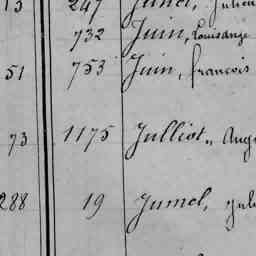 15 247 Junel, Julien
732 Juin, Louisange
51 753 Juin, francois
73 1175 Julliot, Aug
288 19 Jumel, Jul